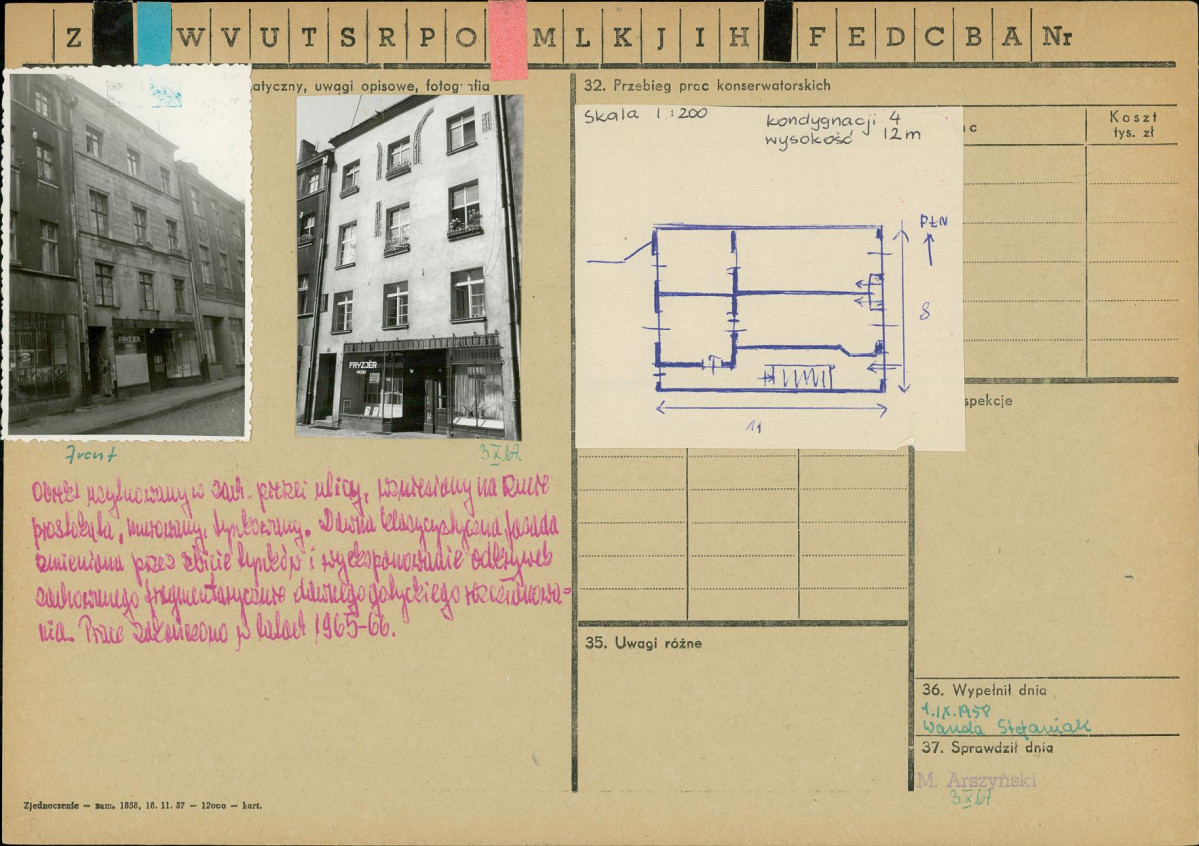 Z W V U T S R P O M L K J I H F E D C B A Nr
atyczny, uwagi opisowe, fotografia
32. Przebieg prac konserwatorskich
Koszt
tys. zł
c
Skala 1:200
kondygnacji 4
wysokość 12 m
PŁN
8
11
FRYZJER
FRYZJER
Front
3 X 67
Obiekt usytuowany w zach. pierzei ulicy, wzniesiony na rzucie
prostokąta, murowany, tynkowany. Dawna klasycystyczna fasada
zmieniona przez zbicie tynków i wyeksponowanie odkrywek
zachowanego fragmentarycznie dawnego gotyckiego rozczłonkowa=
nia. Prace zakończono w latach 1965-66.
spekcje
35. Uwagi różne
36. Wypełnił dnia
1.IX.1958
Wanda Stefaniak
37. Sprawdził dnia
M. Arszyński
3 X 67
Zjednoczenie — zam. 1858, 16. 11. 57 — 12000 — kart.